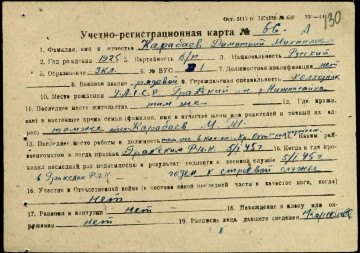 Учетно-регистрационная карта № 66
130
1. Фамилия, имя и отчество Карабаев Димитрий Михайлов
2. Год рождения 1925 3. Партийность б/п 4. Национальность Русский
5. Образование 3кл. 6. № ВУС 1 7. Должностная квалификация нет
8. Воинское звание рядовой 9. Гражданская специальность Колхозник
10. Место рождения УАССР Граховский
11. Последнее место жительства там же 12. Где прожи-
вает в настоящее время семья (фамилия, имя и отчество жены или родителей и точный их ад-
рес) там же Карабаев
13. Последнее место работы и должность
военкоматом и когда призван Граховским РВК 5/I 45 г 15. Когда и где про-
ходил последний раз медкомиссию и результат годности к военной службе 5/I 45 г
в Граховском РВК годен к строевой службе
16. Участие в Отечественной войне (в составе какой последней части в качестве кого, когда)
нет
17. Ранения и контузии нет 18. Нахождение в плену или ок-
ружении нет 19. Расписка лица давшего сведения